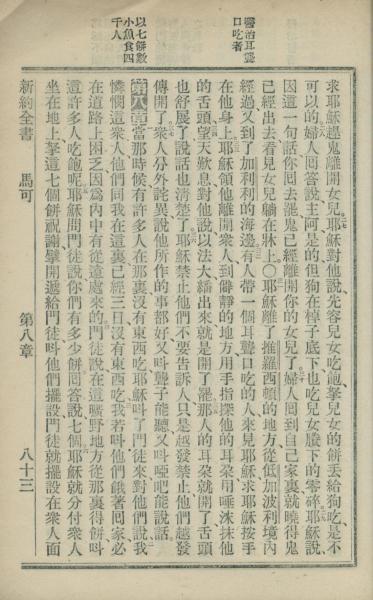 醫治耳聾
口吃者
以七餅數
小魚食四
千人
求耶穌趕鬼離開女兒耶穌對他說先容兒女吃飽拏兒女的餅丟給狗吃是不
可以的婦人回答說主阿是的但狗在棹子底下也吃兒女賸下的零碎耶穌說
因這一句話你回去罷鬼已經離開你的女兒了婦人回到自己家裏就曉得鬼
已經出去看見女兒躺在牀上○耶穌離了推羅西頓的地方從低加波利境內
經過又到了加利利的海邊有人帶一個耳聾口吃的人來見耶穌求耶穌按手
在他身上耶穌領他離開衆人到僻靜的地方用手指探他的耳朶用唾沫抹他
的舌頭望天歎息對他說以法大繙出來就是開了罷那人的耳朶就開了舌頭
也舒展了說話也清楚了耶穌禁止他們不要告訴人只是越發禁止他們越發
傳開了衆人分外詫異說他所作的事都好又叫聾子能聽又叫啞吧能說話
第八章當那時候有許多人在那裏沒有東西吃耶穌叫了門徒來對他們說我
憐憫這衆人他們同我在這裏已經三日沒有東西吃我若叫他們餓著回家必
在道路上困乏因爲內中有從遠處來的門徒說在這曠野地方從那裏得餅叫
這許多人吃飽呢耶穌問門徒說你們有多少餅回答說七個耶穌就分付衆人
坐在地上拏這七個餅祝謝擘開遞給門徒叫他們擺設門徒就擺設在衆人面
新約全書 馬可 第八章 八十三